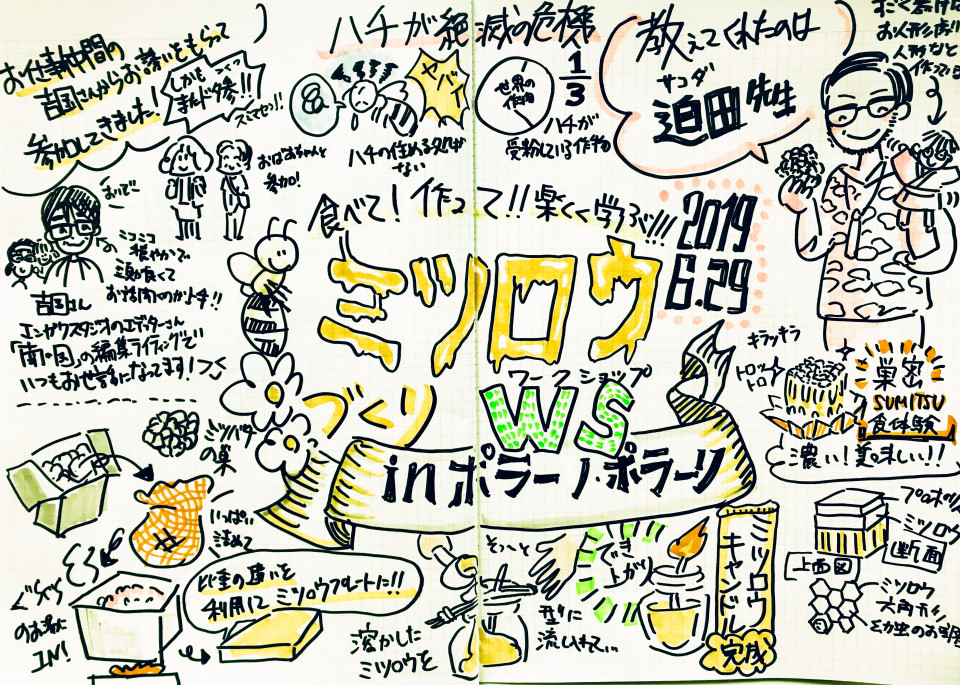 お仕事仲間の
吉国さんからお誘いをもらって
参加してきました!
しかも
まんドタ参!!
スミマセン!!
おばあちゃんと
参加!
ハチが絶滅の危機
ヤバイ
ハチの住める
ない
世界の
作物
1/3
ハチが
受粉している作物
教えてくれたのは
サコダ
迫田先生
お人形
人形など
作っている
おいで
ニコニコ
穏やかで
お話聞くのが上手!!
吉国さん
エンガワスタジオのエディターさん
「南国」の編集ライティングで
いつもお世話になってます!
食べて!作って!!楽しく学ぶ!!!
2019
6.29
ミツロウ
づくり
ワークショップ
WS
inポラーノ・ポラーリ
キラッキラ
トロットロ
巣蜜
SUMITSU
食体験
濃い!美味しい!!
ミツバチ
の巣
いっぱい
詰めて
ぐつぐつ
のお湯に
IN!
比重の違いを
利用して ミツロウプレートに!!
溶かした
ミツロウを
そっと
型に
流し入れて…
でき
上がり
ミツロウ
キャンドル
完成
プロポリス
ミツロウ
断面
上面図
ミツロウ
六角形